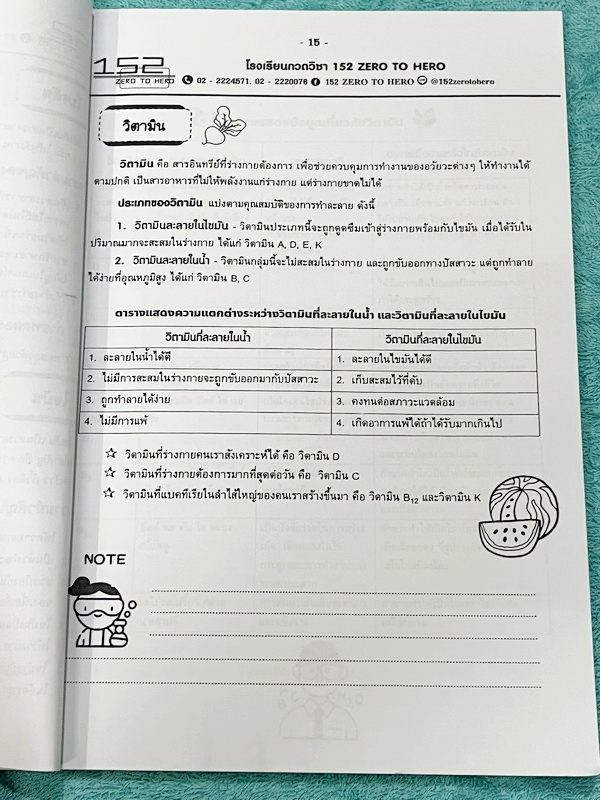 - 15 -
152
ZERO TO HERO
โรงเรียนกวดวิชา 152 ZERO TO HERO
02 - 2224571, 02 - 2220076 152 ZERO TO HERO @152zerotohero
วิตามิน
วิตามิน คือ สารอินทรีย์ที่ร่างกายต้องการ เพื่อช่วยควบคุมการทำงานของอวัยวะต่างๆ ให้ทำงานได้
ตามปกติ เป็นสารอาหารที่ไม่ให้พลังงานแก่ร่างกาย แต่ร่างกายขาดไม่ได้
ประเภทของวิตามิน แบ่งตามคุณสมบัติของการทำละลาย ดังนี้
1. วิตามินละลายในไขมัน - วิตามินประเภทนี้จะถูกดูดซึมเข้าสู่ร่างกายพร้อมกับไขมัน เมื่อได้รับใน
ปริมาณมากจะสะสมในร่างกาย ได้แก่ วิตามิน A, D, E, K
2. วิตามินละลายในน้ำ - วิตามินกลุ่มนี้จะไม่สะสมในร่างกาย และถูกขับออกทางปัสสาวะ แต่ถูกทำลาย
ได้ง่ายที่อุณหภูมิสูง ได้แก่ วิตามิน B, C
ตารางแสดงความแตกต่างระหว่างวิตามินที่ละลายในน้ำ และวิตามินที่ละลายในไขมัน
วิตามินที่ละลายในน้ำ วิตามินที่ละลายในไขมัน
1. ละลายในน้ำได้ดี 1. ละลายในไขมันได้ดี
2. ไม่มีการสะสมในร่างกายจะถูกขับออกมากับปัสสาวะ 2. เก็บสะสมไว้ที่ตับ
3. ถูกทำลายได้ง่าย 3. คงทนต่อสภาวะแวดล้อม
4. ไม่มีการแพ้ 4. เกิดอาการแพ้ได้ถ้าได้รับมากเกินไป
☆ วิตามินที่ร่างกายคนเราสังเคราะห์ได้ คือ วิตามิน D
☆ วิตามินที่ร่างกายต้องการมากที่สุดต่อวัน คือ วิตามิน C
☆ วิตามินที่แบคทีเรียในลำไส้ใหญ่ของคนเราสร้างขึ้นมา คือ วิตามิน B₁₂ และวิตามิน K
NOTE